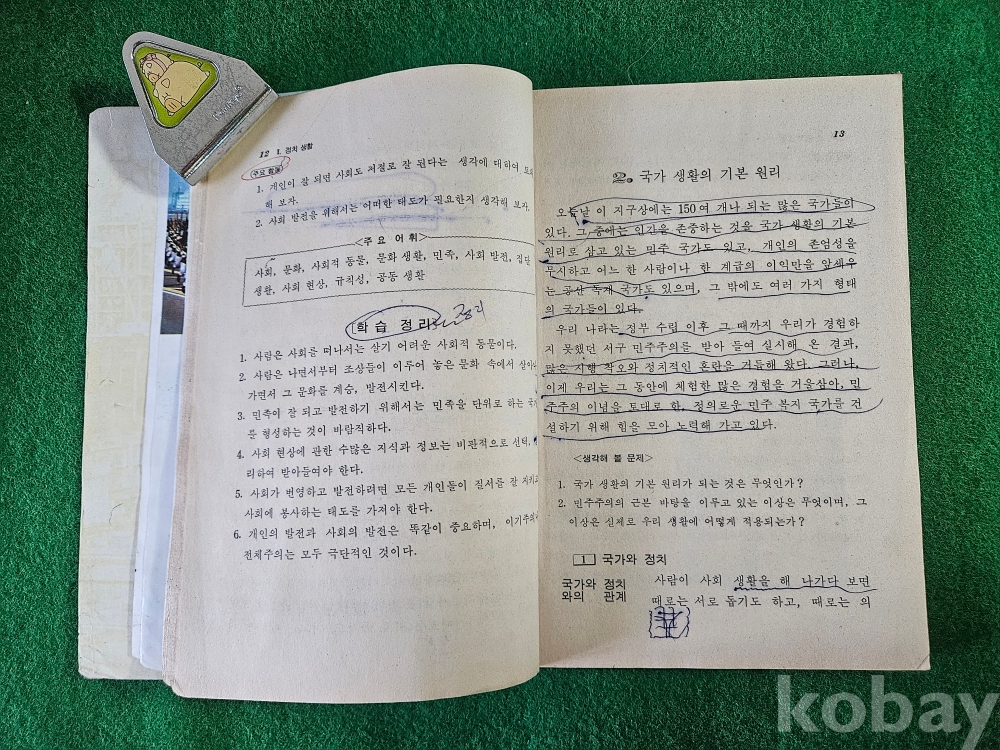 12 Ⅰ. 정치 생활
주요 활동
1. 개인이 잘 되면 사회도 저절로 잘 된다는 생각에 대하여,
해 보자.
2. 사회 발전을 위해서는 어떠한 태도가 필요한지 생각해 보자.
<주요 어휘>
사회, 문화, 사회적 동물, 문화 생활, 민족, 사회 발전, 집단
생활, 사회 현상, 규칙성, 공동 생활
학습 정리 정리
1. 사람은 사회를 떠나서는 살기 어려운 사회적 동물이다.
2. 사람은 나면서부터 조상들이 이루어 놓은 문화 속에서 살아
가면서 그 문화를 계승, 발전시킨다.
3. 민족이 잘 되고 발전하기 위해서는 민족을 단위로 하는
를 형성하는 것이 바람직하다.
4. 사회 현상에 관한 수많은 지식과 정보는 비판적으로 선택,
리하여 받아들여야 한다.
5. 사회가 번영하고 발전하려면 모든 개인들이 질서를 잘 지키고
사회에 봉사하는 태도를 가져야 한다.
6. 개인의 발전과 사회의 발전은 똑같이 중요하며, 이기주의
전체주의는 모두 극단적인 것이다.
13
2. 국가 생활의 기본 원리
오늘날 이 지구상에는 150여 개나 되는 많은 국가들이
있다. 그 중에는 인간을 존중하는 것을 국가 생활의 기본
원리로 삼고 있는 민주 국가도 있고, 개인의 존엄성을
무시하고 어느 한 사람이나 한 계급의 이익만을 앞세우
는 공산 독재 국가도 있으며, 그 밖에도 여러 가지 형태
의 국가들이 있다.
우리 나라는 정부 수립 이후 그 때까지 우리가 경험하
지 못했던 서구 민주주의를 받아 들여 실시해 온 결과,
많은 시행 착오와 정치적인 혼란을 거듭해 왔다. 그러나,
이제 우리는 그 동안에 체험한 많은 경험을 거울삼아, 민
주주의 이념을 토대로 한, 정의로운 민주 복지 국가를 건
설하기 위해 힘을 모아 노력해 가고 있다.
<생각해 볼 문제>
1. 국가 생활의 기본 원리가 되는 것은 무엇인가?
2. 민주주의의 근본 바탕을 이루고 있는 이상은 무엇이며, 그
이상은 실제로 우리 생활에 어떻게 적용되는가?
1 국가와 정치
국가와 정치
와의 관계
사람이 사회 생활을 해 나가다 보면
때로는 서로 돕기도 하고, 때로는 의
kobay